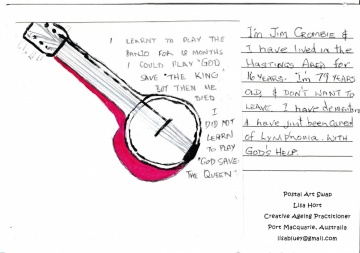 I LEARNT TO PLAY THE
BANJO FOR 12 MONTHS
I COULD PLAY "GOD
SAVE "THE KING"
BUT THEN HE
DIED
I
DID NOT
LEARN
TO PLAY
"GOD SAVE
THE QUEEN"
I'm JIM CROMBIE &
I have lived in the
HASTINGS AREA FOR
16 YEARS. I'm 79 YEARS
OLD, & DON'T WANT TO
LEAVE. I have dementia
& have just been cured
of Lymphonia. WITH
GOD'S HELP.
Postal Art Swap
Lisa Hort
Creative Ageing Practitioner
Port Macquarie, Australia
lisabluey@gmail.com